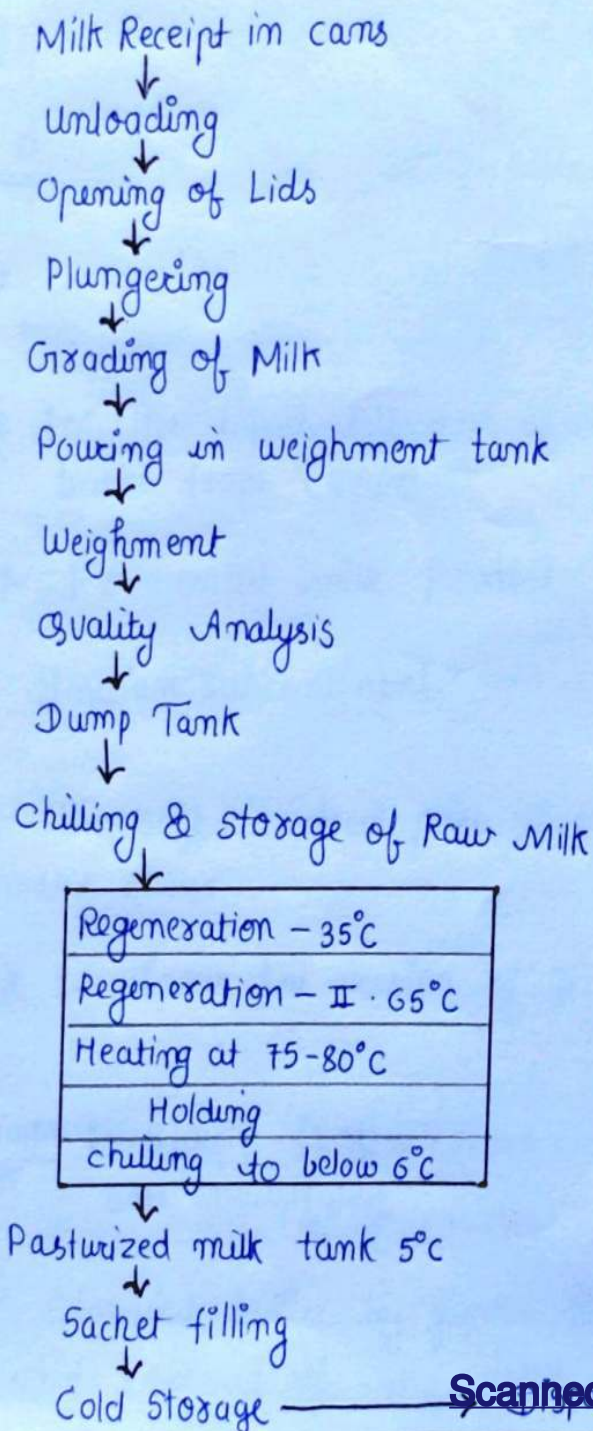 Milk Receipt in cans
↓
Unloading
↓
Opening of Lids
↓
Plungering
↓
Grading of Milk
↓
Pouring in weighment tank
↓
Weighment
↓
Quality Analysis
↓
Dump Tank
↓
Chilling & storage of Raw Milk
↓
Regeneration – 35°C
Regeneration – II · 65°C
Heating at 75-80°C
Holding
chilling to below 6°C
↓
Pasturized milk tank 5°C
↓
Sachet filling
↓
Cold Storage → Scanned